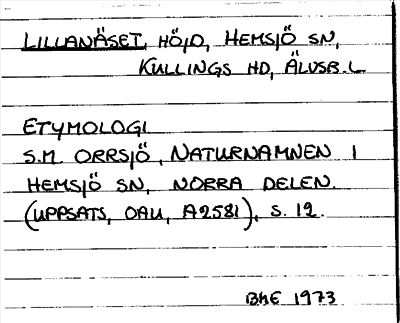 LILLANÄSET, HÖJD, HEMSJÖ SN,
KULLINGS HD, ÄLVSB. L
ETYMOLOGI
S.M. ORRSJÖ, NATURNAMNEN I
HEMSJÖ SN, NORRA DELEN.
(UPPSATS, OAU, A2581), S. 12.
BHE 1973